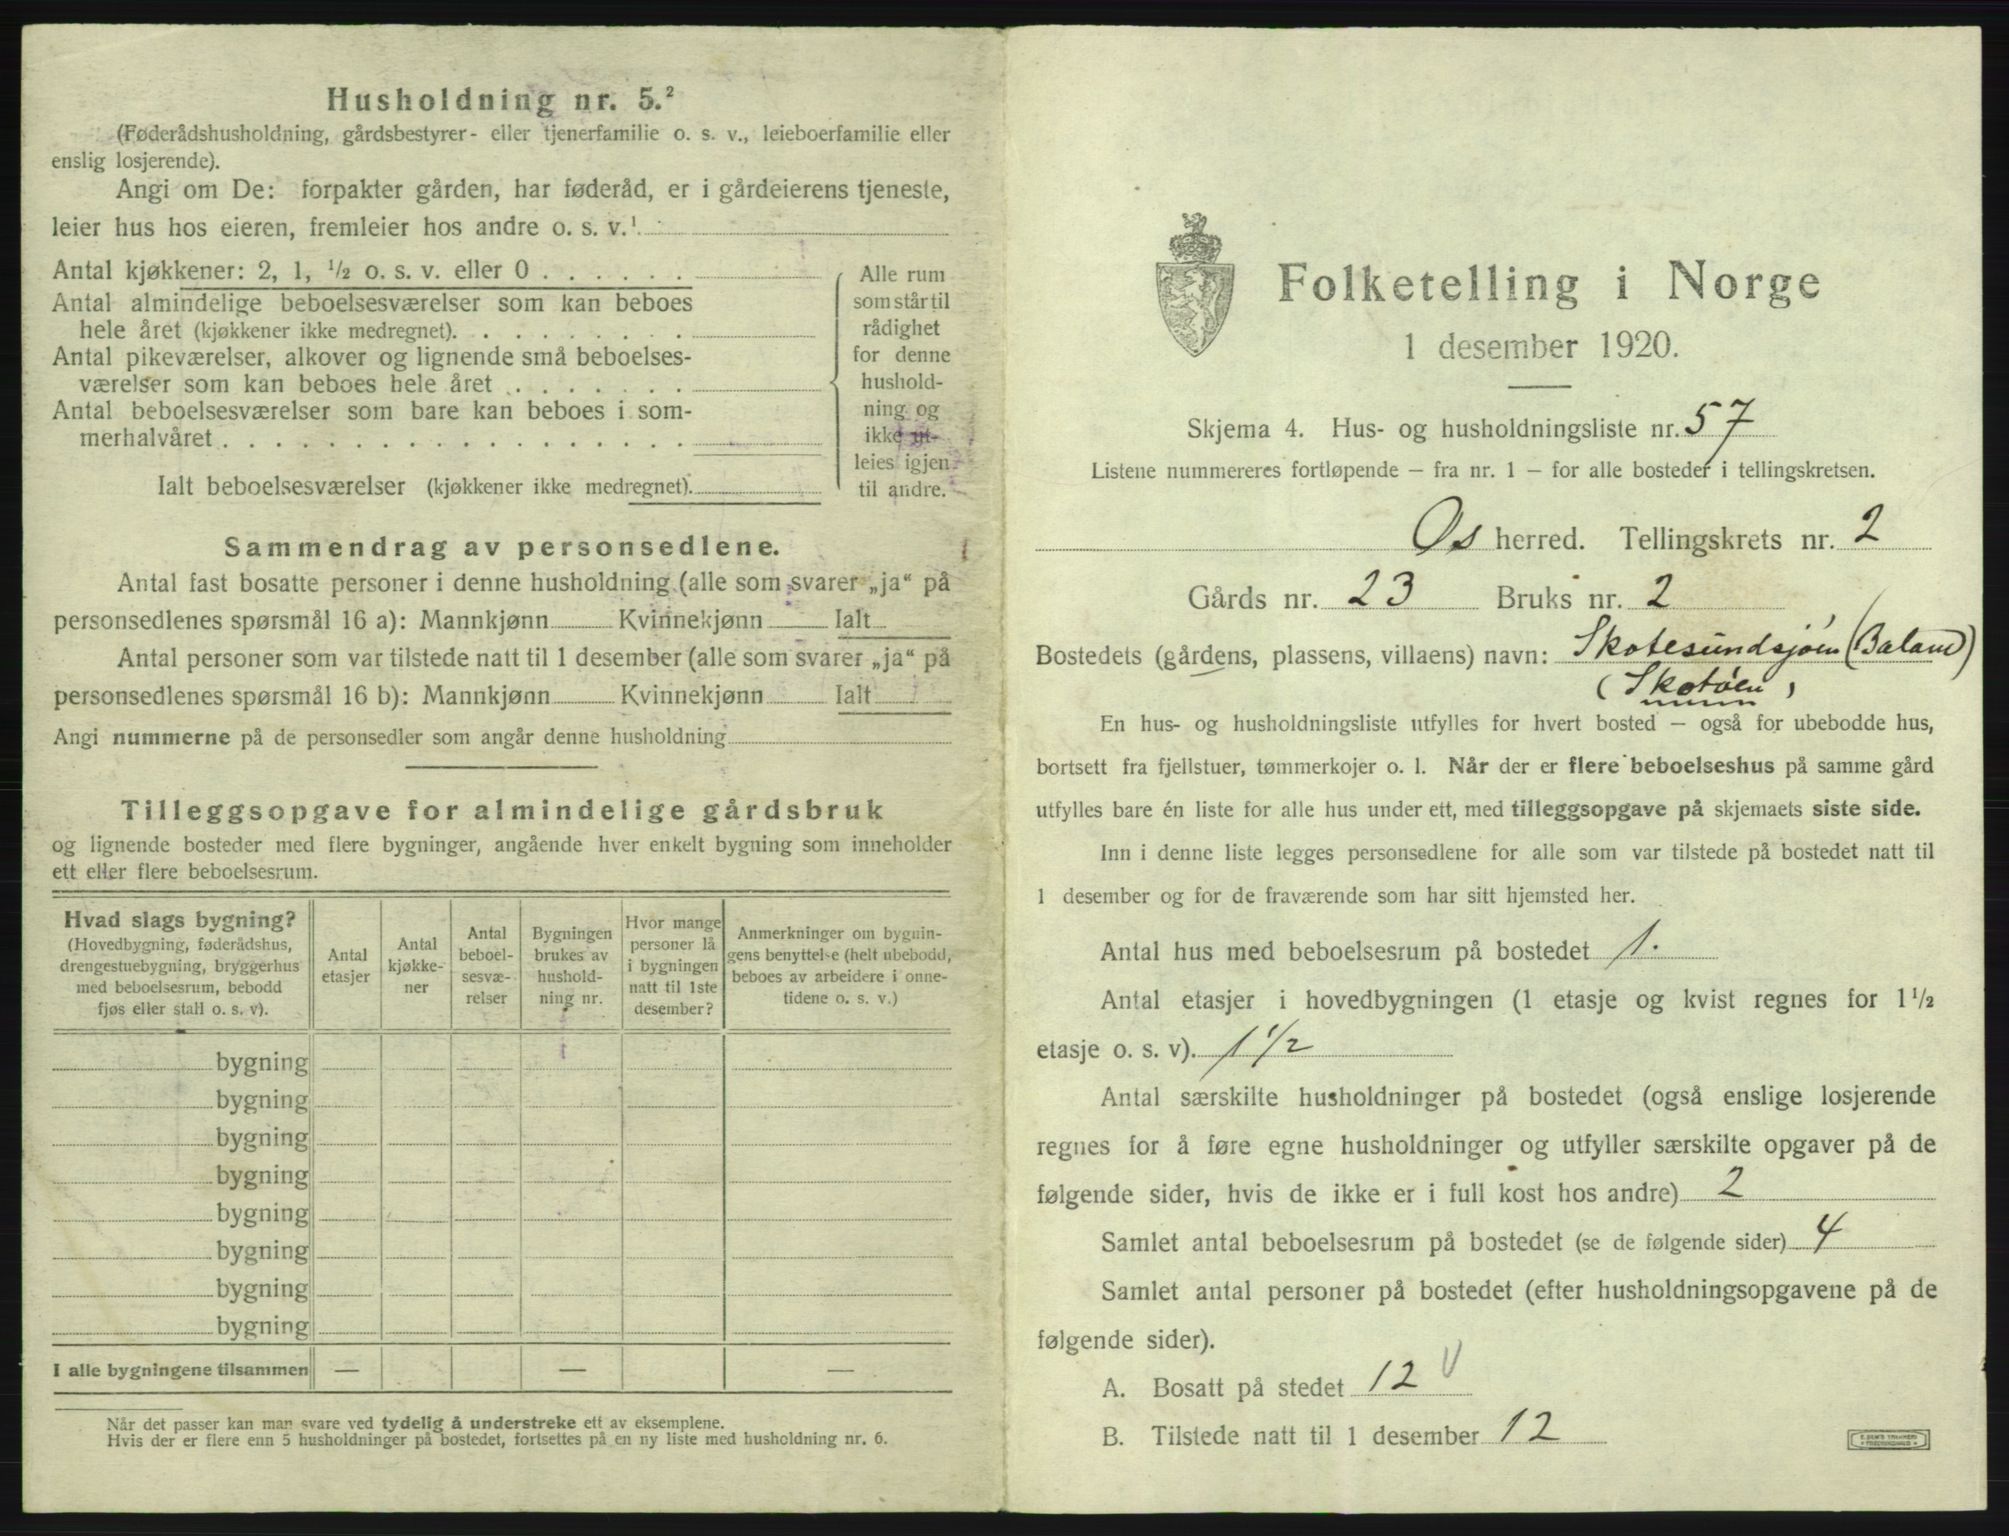 Husholdning nr. 5.²
(Føderådshusholdning, gårdsbestyrer- eller tjenerfamilie o. s. v., leieboerfamilie eller
enslig losjerende).
Angi om De: forpakter gården, har føderåd, er i gårdeierens tjeneste,
leier hus hos eieren, fremleier hos andre o. s. v.¹
Antal kjøkkener: 2, 1, ½ o. s. v. eller 0 . . . . . .
Antal almindelige beboelsesværelser som kan beboes
hele året (kjøkkener ikke medregnet). . . . . . . .
Antal pikeværelser, alkover og lignende små beboelses-
værelser som kan beboes hele året . . . . . . .
Antal beboelsesværelser som bare kan beboes i som-
merhalvåret . . . . . . . . . . . . . . . . .
Ialt beboelsesværelser (kjøkkener ikke medregnet).
Alle rum
som står til
rådighet
for denne
hushold-
ning og
ikke ut-
leies igjen
til andre.
Sammendrag av personsedlene.
Antal fast bosatte personer i denne husholdning (alle som svarer „ja“ på
personsedlenes spørsmål 16 a): Mannkjønn Kvinnekjønn Ialt
Antal personer som var tilstede natt til 1 desember (alle som svarer „ja“ på
personsedlenes spørsmål 16 b): Mannkjønn Kvinnekjønn Ialt
Angi nummerne på de personsedler som angår denne husholdning
Tilleggsopgave for almindelige gårdsbruk
og lignende bosteder med flere bygninger, angående hver enkelt bygning som inneholder
ett eller flere beboelsesrum.
Hvad slags bygning?
(Hovedbygning, føderådshus,
drengestuebygning, bryggerhus
med beboelsesrum, bebodd
fjøs eller stall o. s. v).
Antal
etasjer
Antal
kjøkke-
ner
Antal
beboel-
sesvæ-
relser
Bygningen
brukes av
hushold-
ning nr.
Hvor mange
personer lå
i bygningen
natt til 1ste
desember?
Anmerkninger om bygnin-
gens benyttelse (helt ubebodd,
beboes av arbeidere i onne-
tidene o. s. v.)
bygning
bygning
bygning
bygning
bygning
bygning
bygning
bygning
I alle bygningene tilsammen — — —
Når det passer kan man svare ved tydelig å understreke ett av eksemplene.
Hvis der er flere enn 5 husholdninger på bostedet, fortsettes på en ny liste med husholdning nr. 6.
Folketelling i Norge
1 desember 1920.
Skjema 4. Hus- og husholdningsliste nr. 57
Listene nummereres fortløpende – fra nr. 1 – for alle bosteder i tellingskretsen.
Os herred. Tellingskrets nr. 2
Gårds nr. 23 Bruks nr. 2
Bostedets (gårdens, plassens, villaens) navn: Skotesundsjøen (Baland)
(Skotøen)
En hus- og husholdningsliste utfylles for hvert bosted – også for ubebodde hus,
bortsett fra fjellstuer, tømmerkojer o. l. Når der er flere beboelseshus på samme gård
utfylles bare én liste for alle hus under ett, med tilleggsopgave på skjemaets siste side.
Inn i denne liste legges personsedlene for alle som var tilstede på bostedet natt til
1 desember og for de fraværende som har sitt hjemsted her.
Antal hus med beboelsesrum på bostedet 1.
Antal etasjer i hovedbygningen (1 etasje og kvist regnes for 1½
etasje o. s. v). 1½
Antal særskilte husholdninger på bostedet (også enslige losjerende
regnes for å føre egne husholdninger og utfyller særskilte opgaver på de
følgende sider, hvis de ikke er i full kost hos andre) 2
Samlet antal beboelsesrum på bostedet (se de følgende sider) 4
Samlet antal personer på bostedet (efter husholdningsopgavene på de
følgende sider).
A. Bosatt på stedet 12
B. Tilstede natt til 1 desember 12